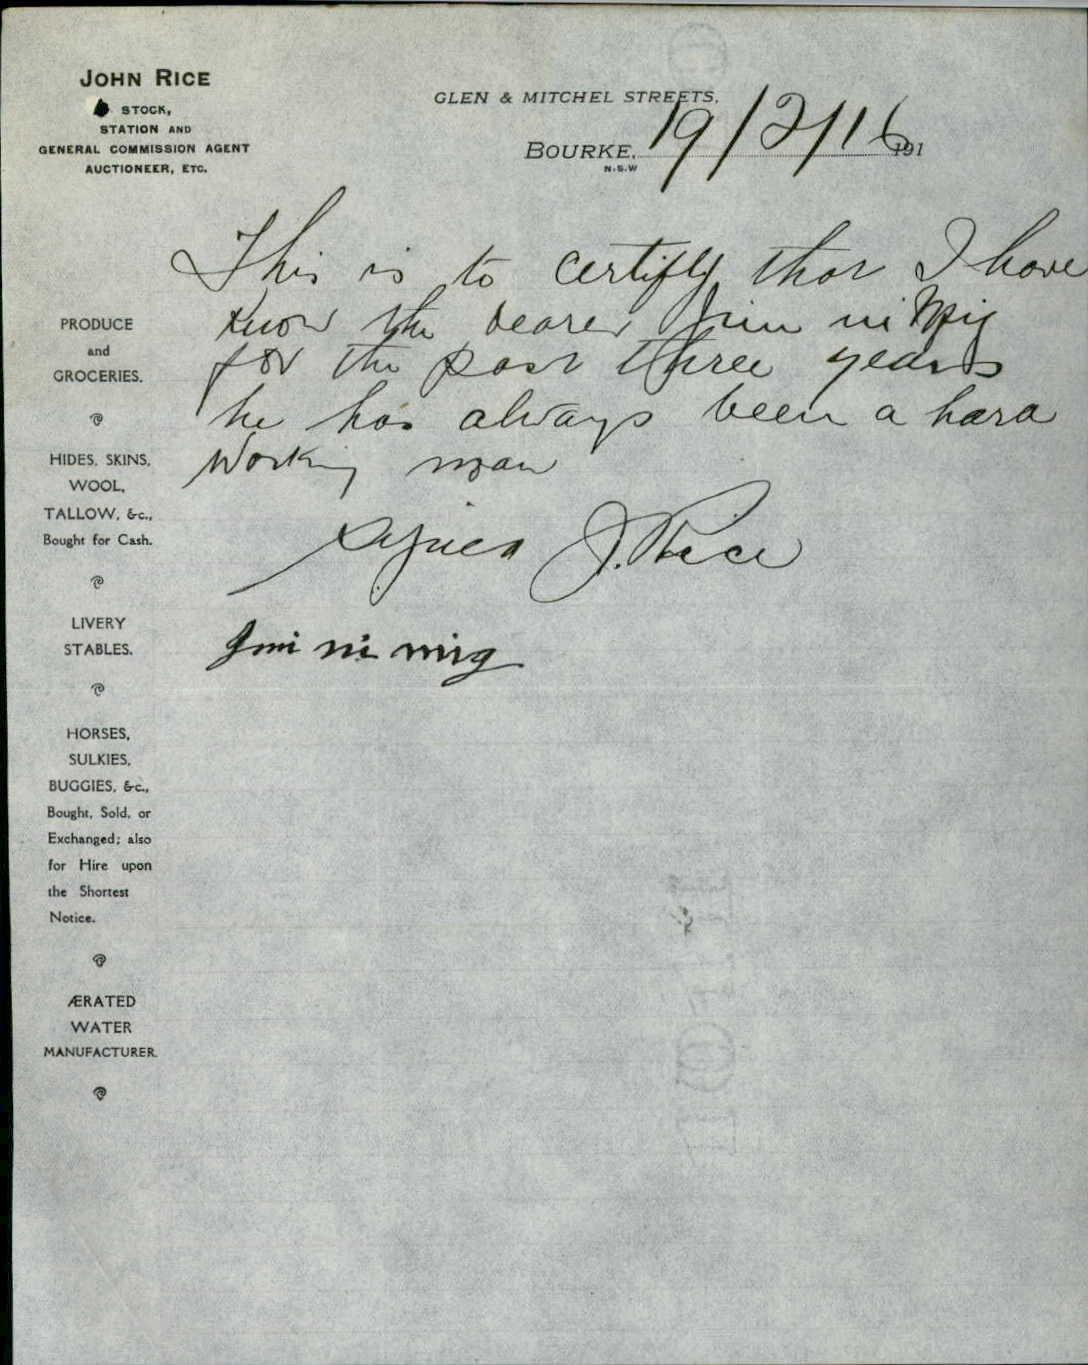 JOHN RICE
STOCK,
STATION AND
GENERAL COMMISSION AGENT
AUCTIONEER, ETC.
GLEN & MITCHEL STREETS,
BOURKE, 19/2/16 191
N.S.W
This is to certifly that I have
know the bearer Jim ni Mig
for the past three years
he has always been a hard
working man
Signed J. Rice
Jimi ni mig
PRODUCE
and
GROCERIES.
HIDES, SKINS,
WOOL,
TALLOW, &c.,
Bought for Cash.
LIVERY
STABLES.
HORSES,
SULKIES,
BUGGIES, &c.,
Bought, Sold, or
Exchanged; also
for Hire upon
the Shortest
Notice.
ÆRATED
WATER
MANUFACTURER.